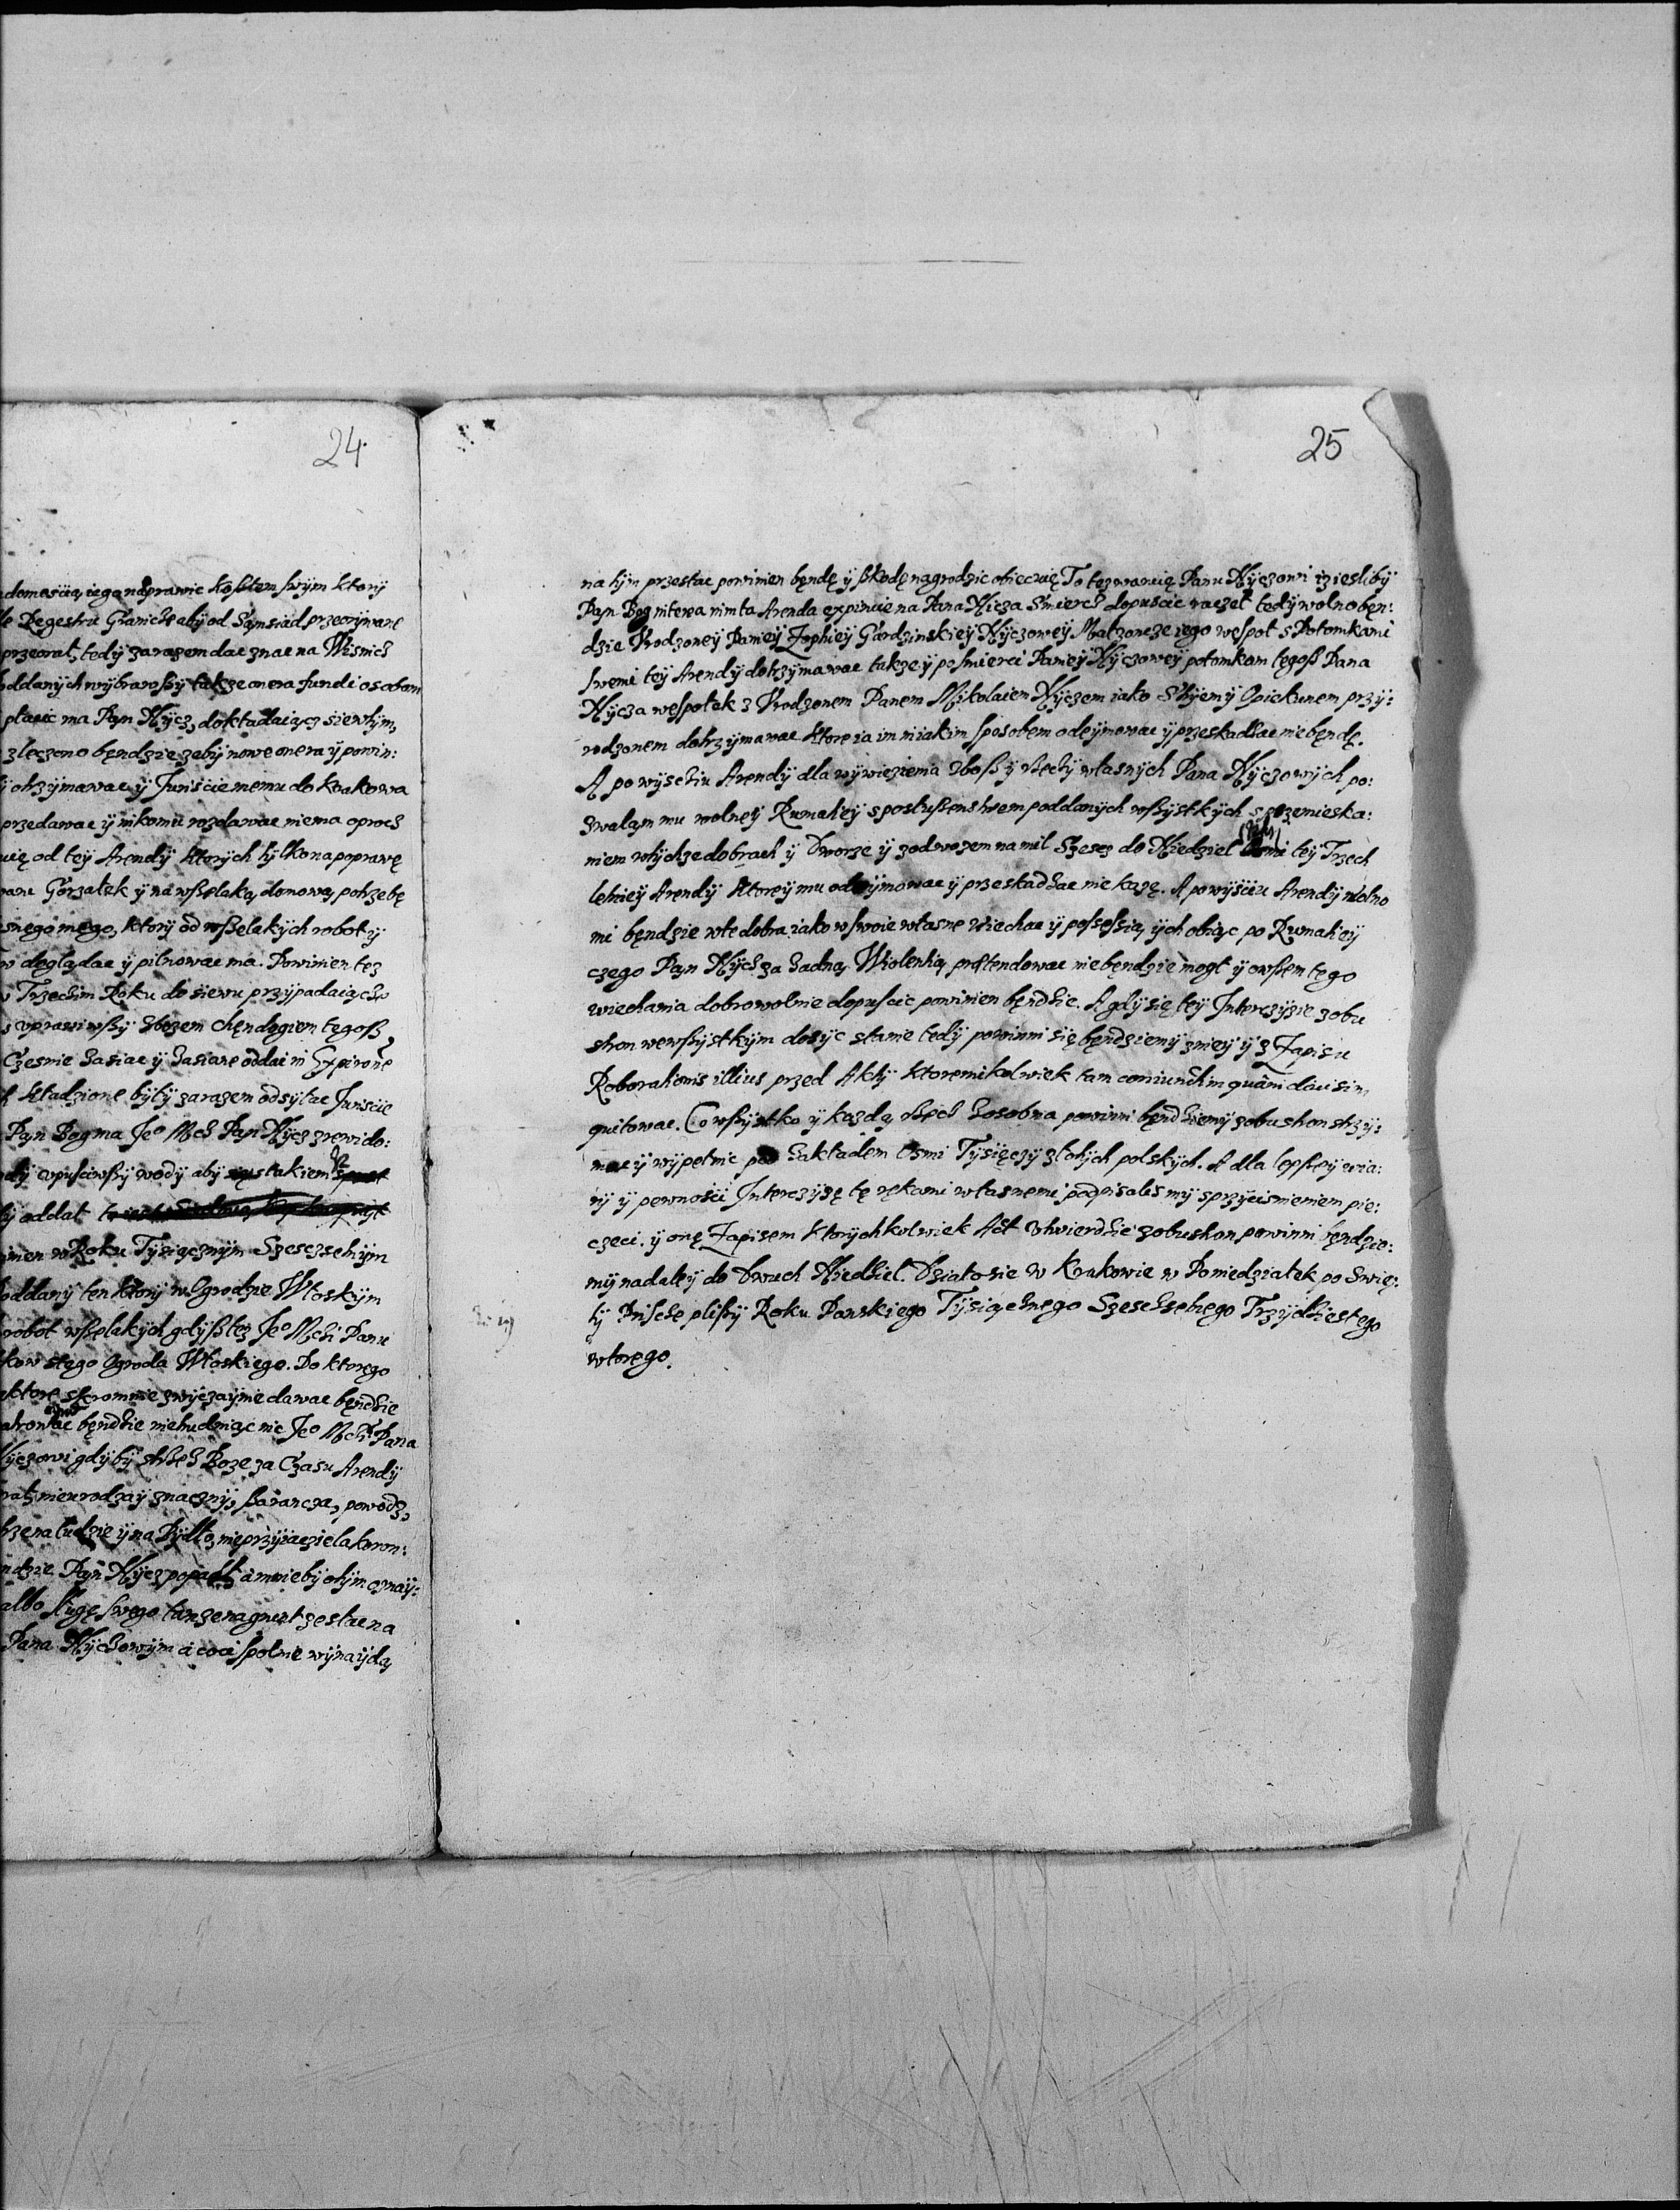 24.
domością iego naprawic kosztem swym ktory
Regestru Granicże aby od Sąmsiad przeorywane
przeorał, tedy zarazem dac znac na Wisnicz
oddanych wybrawszy także onera fundi osobom
płacic ma Pan Hycz, dokładaiącz sie w tym,
zleczono bendzie żeby nowe onera y powin:
otrzymawac y Juriście memu do krakowa
przedawac y nikomu rozdawac niema oprocz
od tey Arendy ktorych tylko na poprawę
Gorzałek y na wszelaką domową potrzebę
snego mego, ktory od wszelakych robot y
doglądac y pilnowac ma. Powinien tez
Trzecim Roku do siewu przypadaiących
uprawiwszy zbożem chendogiem tegosz
Czesnie zasiac y zasiane oddac in
kładzione byly zarazem odsyłac Juriście
Pan Bog ma Jeo Mcz Pan Hycz zrewido:
wpusciwszy wody aby takiem
oddał
w Roku Tysiącznym Szescsetnym
oddany ten ktory w Ogrodzie Włoskym
robot wszelakych gdysz tez Jeo Mczi Panu
stego Ogroda Włoskiego. Do ktorego
ktore skromnie zwyczaynie dawac bendzie
bendzie nietrudniąc nic Jeo Mczi Pana
Hyczowi gdyby strzesz Boze za Czasu Arendy
nieurodzay znaczny, szarancza, powodz,
na ludzie y na Bydło, nieprzyiaciela koron:
Pan Hycz popadł a mnie by o tym oznay:
albo sługę swego tamze na grunt zesłac na
Pana Hyczowym a co ci spolnie wynaydą
25
na tym przestac powinien bendę y szkodę nagrodzic obiecuię. To tez waruię Panu Hyczowi iz iesliby
Pan Bog nitera nim ta Arenda expiruie na Pana Hicza Smiercz dopuscic raczeł tedy wolno ben:
dzie Urodzoney Paniey Zophiey Gardzinskiey Hyczowey Małzoncze iego wespoł s Potomkami
swemi tey Arendy dotrzymawac takze y po smierci Paniey Hyczowey potomkom tegosz Pana
Hycza wespołek z Urodzonem Panem Mikolaiem Hyczem iako Stryiem y Opiekunem przy:
rodzonem dotrzymawac ktore ia im niiakim sposobem odeymowac y przeskadzac niebendę.
A po wyscziu Arendy dla wywiezienia zbosz y rzeczy własnych Pana Hyczowych po:
zwalam mu wolney Rumatiey s posłuszenstwem poddanych wszystkych s pomieska:
niem w tychze dobrach y Dworze y z odwozem na mil Szescz do Niedziel osmi tey Trzech
letniey Arendy ktorey mu odeymowac y przeskadzac nie każę. A po wyściu Arendy wolno
mi bendzie w te dobra iako w swoie własne wiechac y possessią ych obiąc po Rumatiey
czego Pan Hycz za zadną Wiolentią prætendowac niebendzie mogł y owszem tego
wiechania dobrowolnie dopuscic powinien bendzie. A gdy się tey Interczyzie z obu
stron wewszystkym dosyc stanie tedy powinni się bendziemy zniey y z Zapisu
Roborationis illius przed Akty ktoremikolwiek tam coniunctim quam divisim
quitowac. Co wszystko y kazdą rzecz zosobna powinni bendziemy z obu stron strzy:
mac y wypełnic pod zakładem Osmi Tysięczy złotych polskych. A dla lepszey wia:
ry y pewności Interczyzę tę rękami własnemi podpisalismy s przycisnieniem pie:
czeci. y onę Zapisem ktorychkolwiek Act utwierdzic z obu stron powinni bendzie:
my nadaley do Dwuch Niedziel. Działo sie w Krakowie w Poniedziałek po Swię:
ty Roku Panskiego Tysiącznego Szesczsetnego Trzydziestego
wtorego.